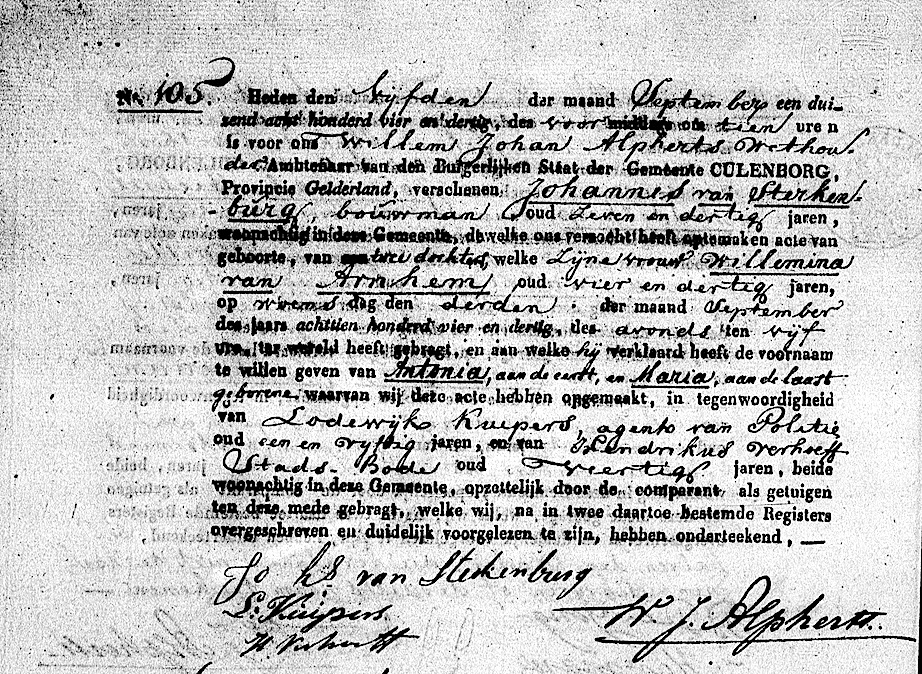 No. 105. Heden den Vyfden der maand September een dui-
zend acht honderd vier en dertig, des voor middags om tien ure n
is voor ons Willem Johan Alpherts Wethou-
der Ambtenaar van den Burgerlijken Staat der Gemeente CULENBORG,
Provincie Gelderland, verschenen Johannes van Sterken-
-burg, bouwman oud Zeven en dertig jaren,
woonachtig in deze Gemeente, dewelke ons verzocht heeft optemaken acte van
geboorte, van twee dochters, welke Zyne vrouw Willemina
van Arnhem oud vier en dertig jaren,
op woens dag den derden der maand September
des jaars achttien honderd vier en dertig, des avonds ten vyf
ure, ter wereld heeft gebragt, en aan welke hij verklaard heeft de voornaam
te willen geven van Antonia, aan de eerst, en Maria, aan de laast
geborene waarvan wij deze acte hebben opgemaakt, in tegenwoordigheid
van Lodewyk Kuipers, agent van Politie
oud een en vyftig jaren, en van Hendrikus Verhoeff
Stads-Bode oud Veertig jaren, beide
woonachtig in deze Gemeente, opzettelijk door de comparant als getuigen
ten deze mede gebragt, welke wij, na in twee daartoe bestemde Registers
overgeschreven en duidelijk voorgelezen te zijn, hebben onderteekend, —
Jo hs van Sterkenburg
L. Kuipers
W. J. Alpherts.
H Verhoeff